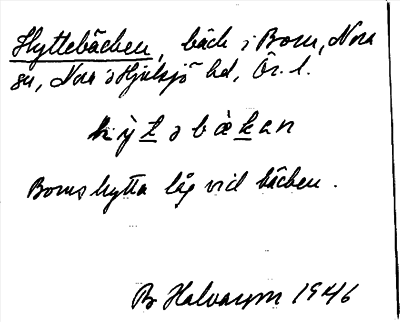 Hyttebäcken, bäck i Born, Nora
sn, Nora o Hjulsjö hd, Ör. l.
hỳtəbàkan
Bornshytta låg vid bäcken.
Br Halvarson 1946